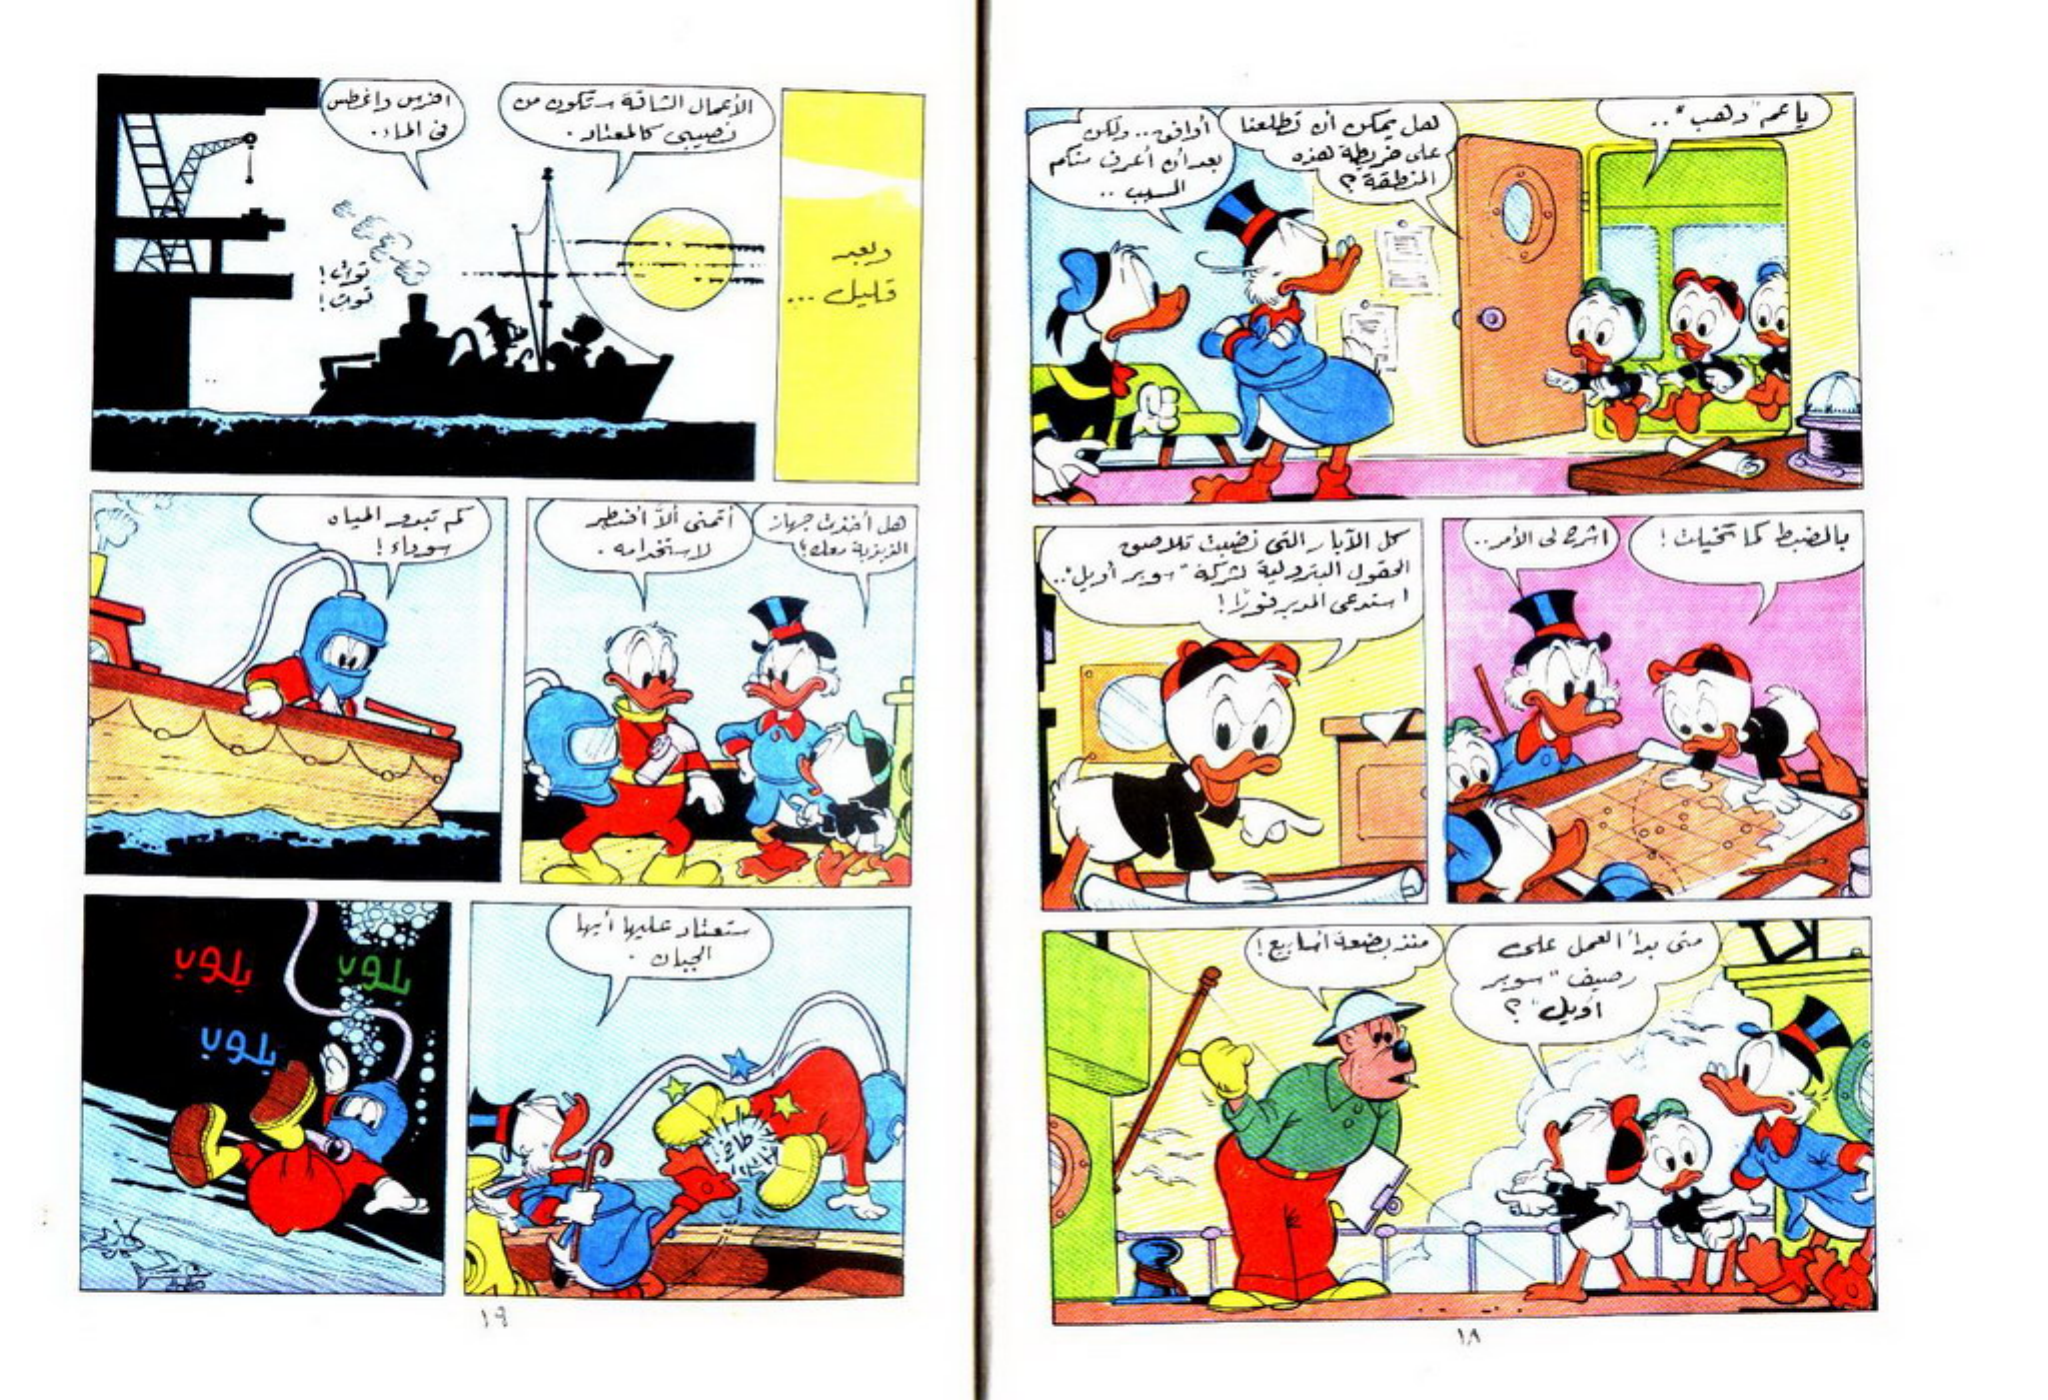 يا عم "دهب"..
هل يمكن أن تطلعنا
على خريطة هذه
المنطقة؟
أوافق.. ولكن
بعد أن أعرف منكم
السبب..
بالضبط كما تخيلت!
اشرح لى الأمر..
كل الآبار التى نضبت تلاصق
الحقول البترولية لشركة "سوبر أويل"..
استدعى المدير فورًا!
متى بدأ العمل على
رصيف "سوبر
أويل"؟
منذ بضعة أسابيع!
١٨
وبعد
قليل...
الأعمال الشاقة ستكون من
نصيبى كالمعتاد.
اخرس واغطس
فى الماء.
توت!
توت!
هل أخذت جهاز
الذبذبة معك؟
أتمنى ألا أضطر
لاستخدامه.
كم تبدو المياه
سوداء!
ستعتاد عليها أيها
الجبان.
طاخ
بلوب
بلوب
بلوب
١٩